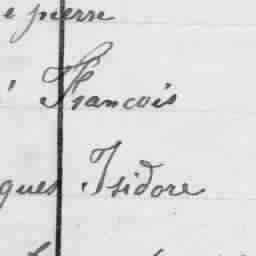 e pierre
François
ques Isidore